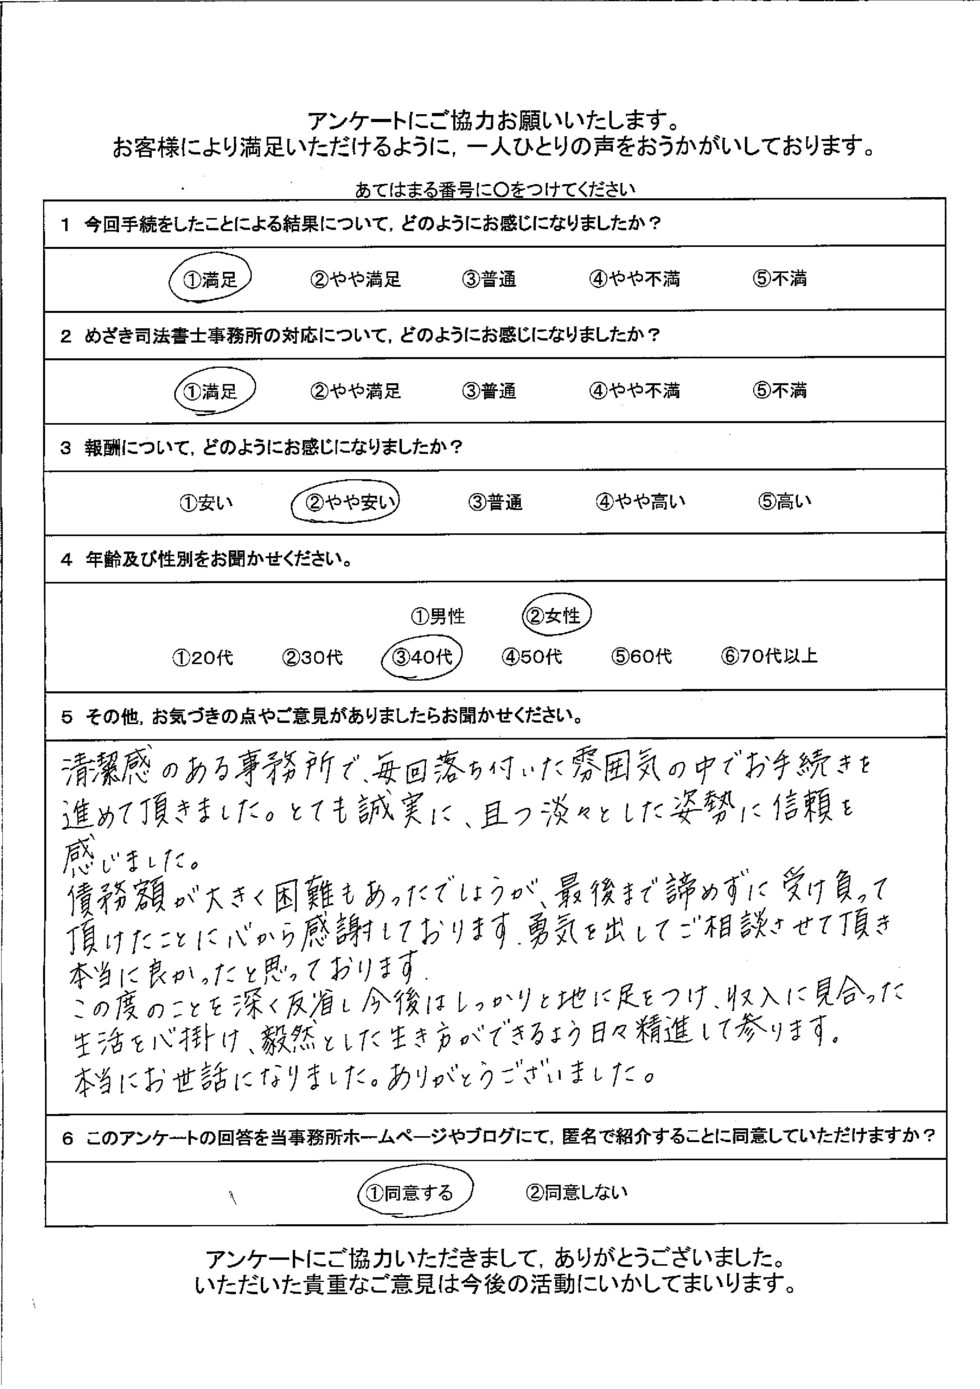 アンケートにご協力お願いいたします。
お客様により満足いただけるように，一人ひとりの声をおうかがいしております。
あてはまる番号に〇をつけてください
1 今回手続をしたことによる結果について，どのようにお感じになりましたか？
①満足 ②やや満足 ③普通 ④やや不満 ⑤不満
2 めざき司法書士事務所の対応について，どのようにお感じになりましたか？
①満足 ②やや満足 ③普通 ④やや不満 ⑤不満
3 報酬について，どのようにお感じになりましたか？
①安い ②やや安い ③普通 ④やや高い ⑤高い
4 年齢及び性別をお聞かせください。
①男性 ②女性
①20代 ②30代 ③40代 ④50代 ⑤60代 ⑥70代以上
5 その他，お気づきの点やご意見がありましたらお聞かせください。
清潔感のある事務所で、毎回落ち付いた雰囲気の中でお手続きを
進めて頂きました。とても誠実に、且つ淡々とした姿勢に信頼を
感じました。
債務額が大きく困難もあったでしょうが、最後まで諦めずに受け負って
頂けたことに心から感謝しております．勇気を出してご相談させて頂き
本当に良かったと思っております．
この度のことを深く反省し今後はしっかりと地に足をつけ、収入に見合った
生活を心掛け、毅然とした生き方ができるよう日々精進して参ります。
本当にお世話になりました。ありがとうございました。
6 このアンケートの回答を当事務所ホームページやブログにて，匿名で紹介することに同意していただけますか？
①同意する ②同意しない
アンケートにご協力いただきまして，ありがとうございました。
いただいた貴重なご意見は今後の活動にいかしてまいります。